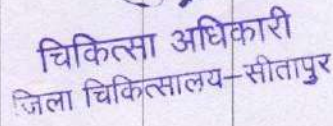 चिकित्सा अधिकारी
जिला चिकित्सालय–सीतापुर